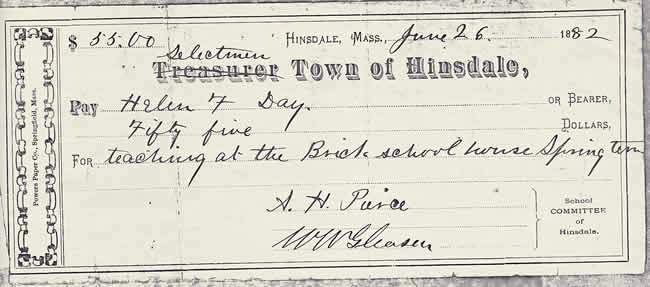 $ 55.00 Hinsdale, Mass., June 26. 1882
Selectmen
Treasurer Town of Hinsdale,
Pay Helen F Day. or Bearer,
Fifty five Dollars,
For teaching at the Brick school house Spring term
A. H. Pierce
W W Gleason
School
COMMITTEE
of
Hinsdale.
Powers Paper Co., Springfield, Mass.